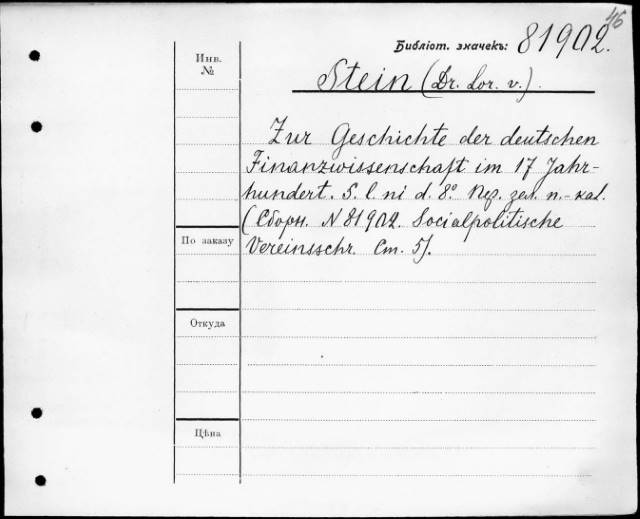 46
Библіот. значекъ: 81902.
Инв.
№
Stein (Dr. Lor. v.).
Zur Geschichte der deutschen
Finanzwissenschaft im 17 Jahr-
hundert. S. l. ni d. 8º. зел. п.-кал.
(Сборн. N 81902. Socialpolitische
По заказу
Vereinsschr. Ст. 5).
Откуда
Цѣна